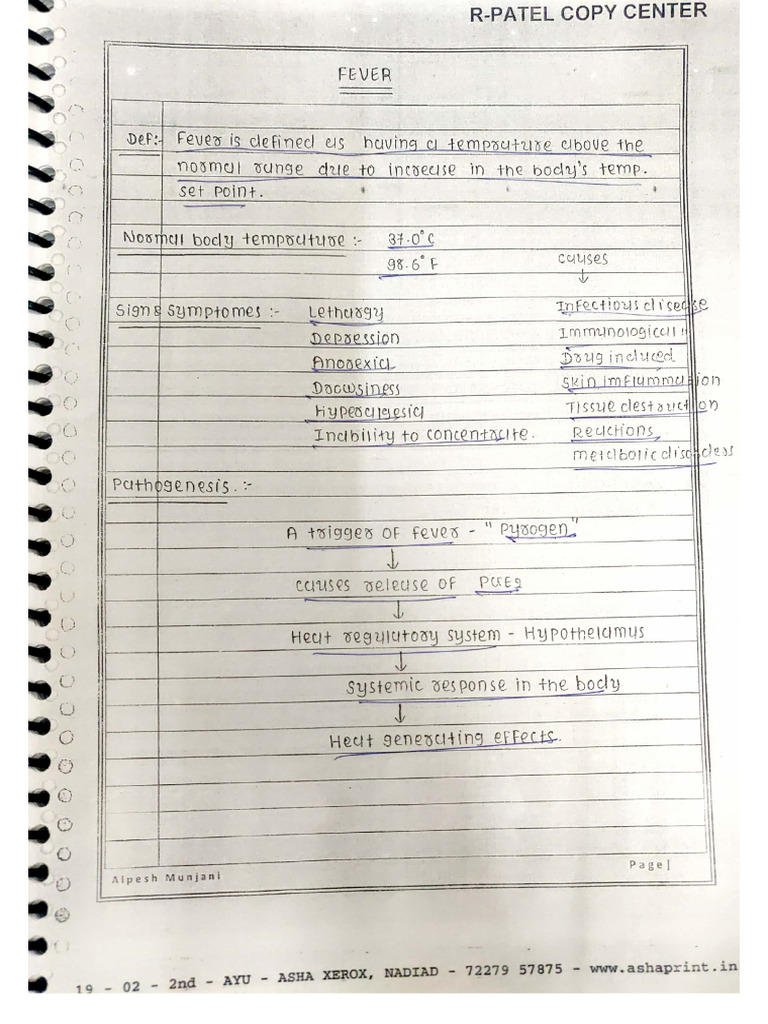 R-PATEL COPY CENTER
FEVER
Def:- Fever is defined as having a temprature above the
normal range due to increase in the body's temp.
set point.
Normal body temprature :- 37.0°C
98.6°F
causes
↓
Sign & Symptomes :- Lethargy Infectious disease
Depression Immunological "
Anorexia Drug induced
Drowsiness Skin imflammation
Hyperalgesia Tissue destruction
Inability to concentrate. Reactions,
metabolic disorders
Pathogenesis. :-
A trigger of fever - "Pyrogen"
↓
causes release of PGE2
↓
Heat regulatory system - Hypothelamus
↓
Systemic response in the body
↓
Heat generating effects.
Alpesh Munjani
Page|
19 - 02 - 2nd - AYU - ASHA XEROX, NADIAD - 72279 57875 - www.ashaprint.in